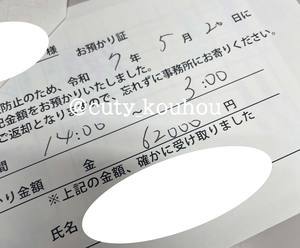 様 お預かり証
防止のため、令和 7 年 5 月 20 日に
記金額をお預かりいたしました。
ご返却となりますので、忘れずに事務所にお寄りください。
@cuty_kouhou
間 14:00 ~ 3:00
かり金額 金 62000 円
※上記の金額、確かに受け取りました
氏名